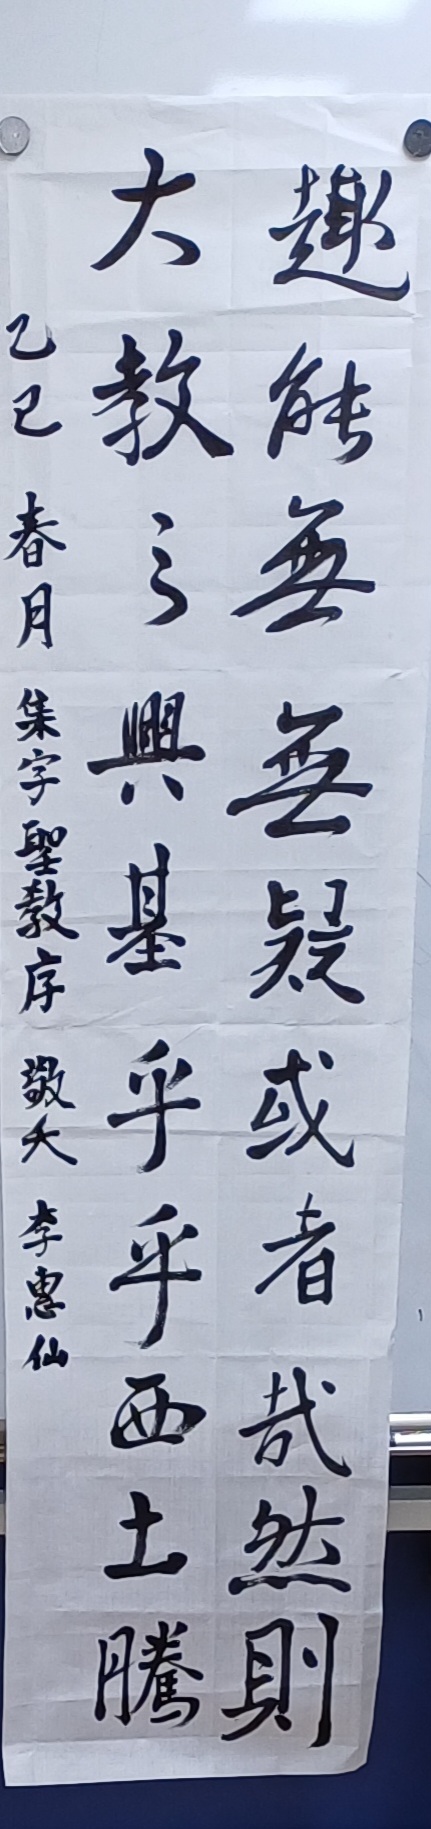 趣能無無疑或者哉然則
大教之興基乎乎西土騰
乙巳 春月 集字聖教序 敬大 李惠仙